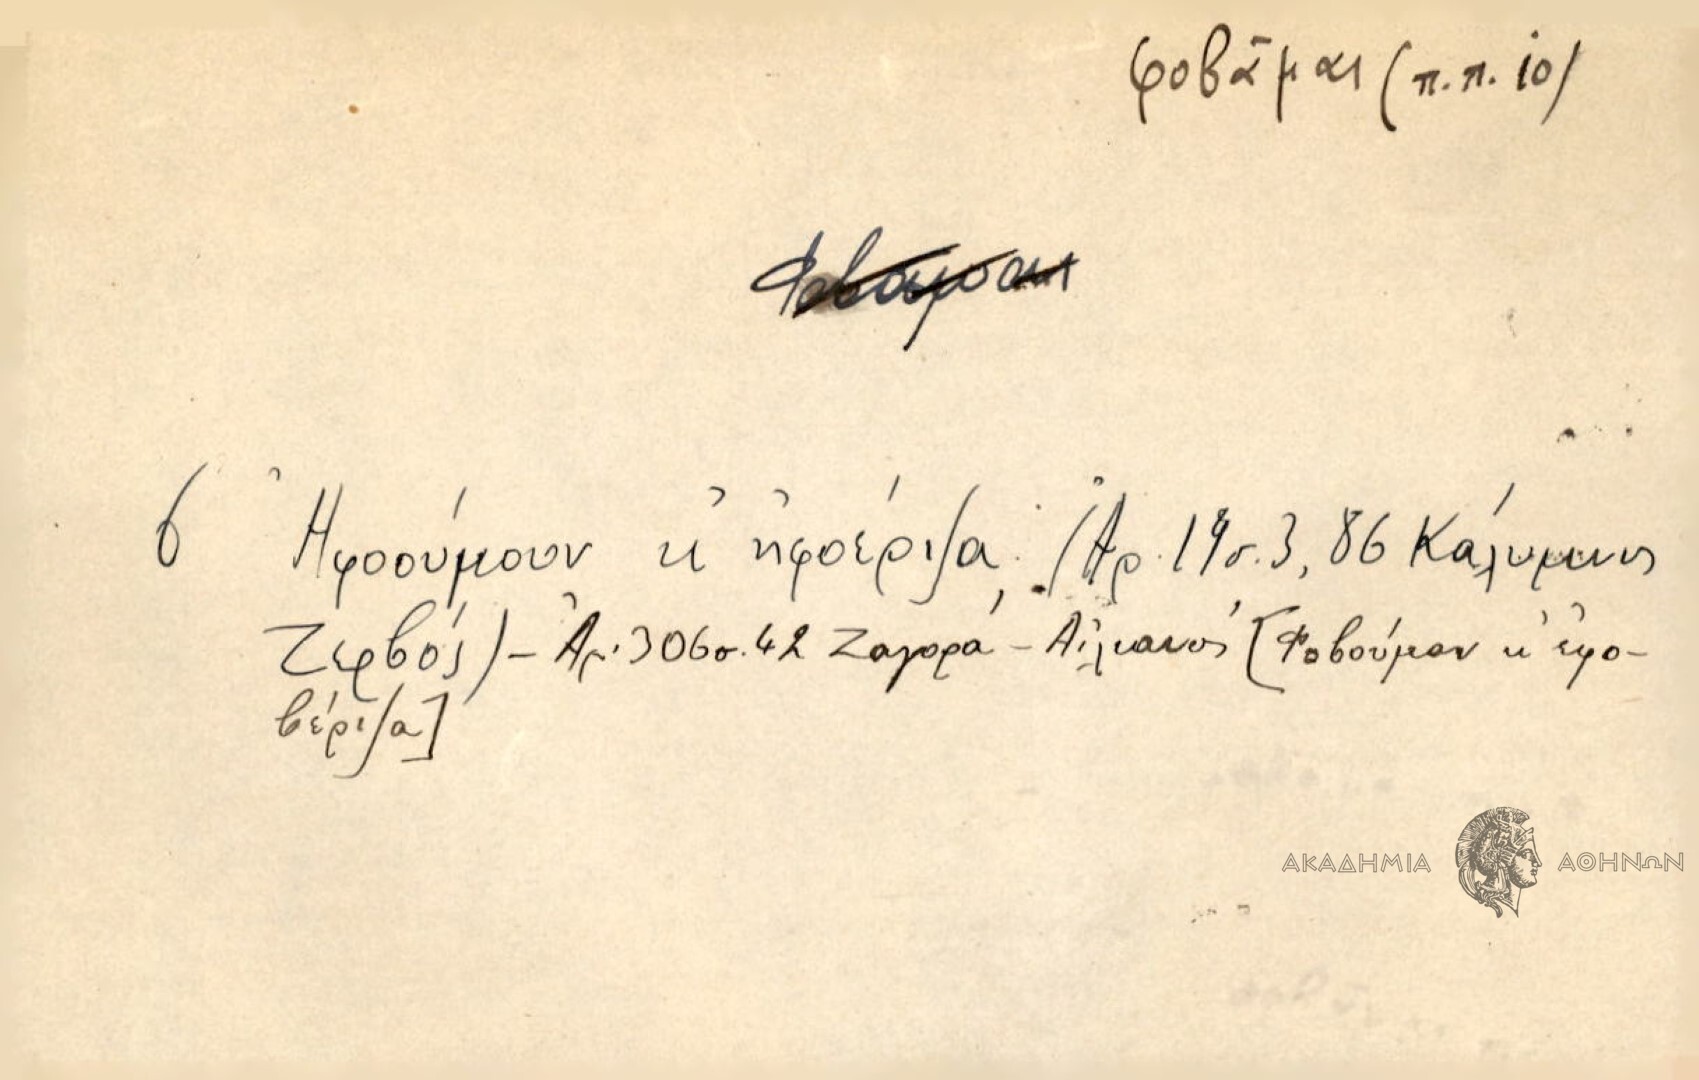 φοβᾶμαι (π.π. ιο)
Φοβᾶμαι
Ἠφοούμουν κ' ἠφοέριζα. (Ἀρ. 19 σ. 3, 86 Κάλυμνος
Ζερβός) – Ἀρ. 306 σ. 42 Ζαγορά – Αἰλιανός [Φοβούμουν κ' ἐφο-
βέριζα]
ΑΚΑΔΗΜΙΑ ΑΘΗΝΩΝ